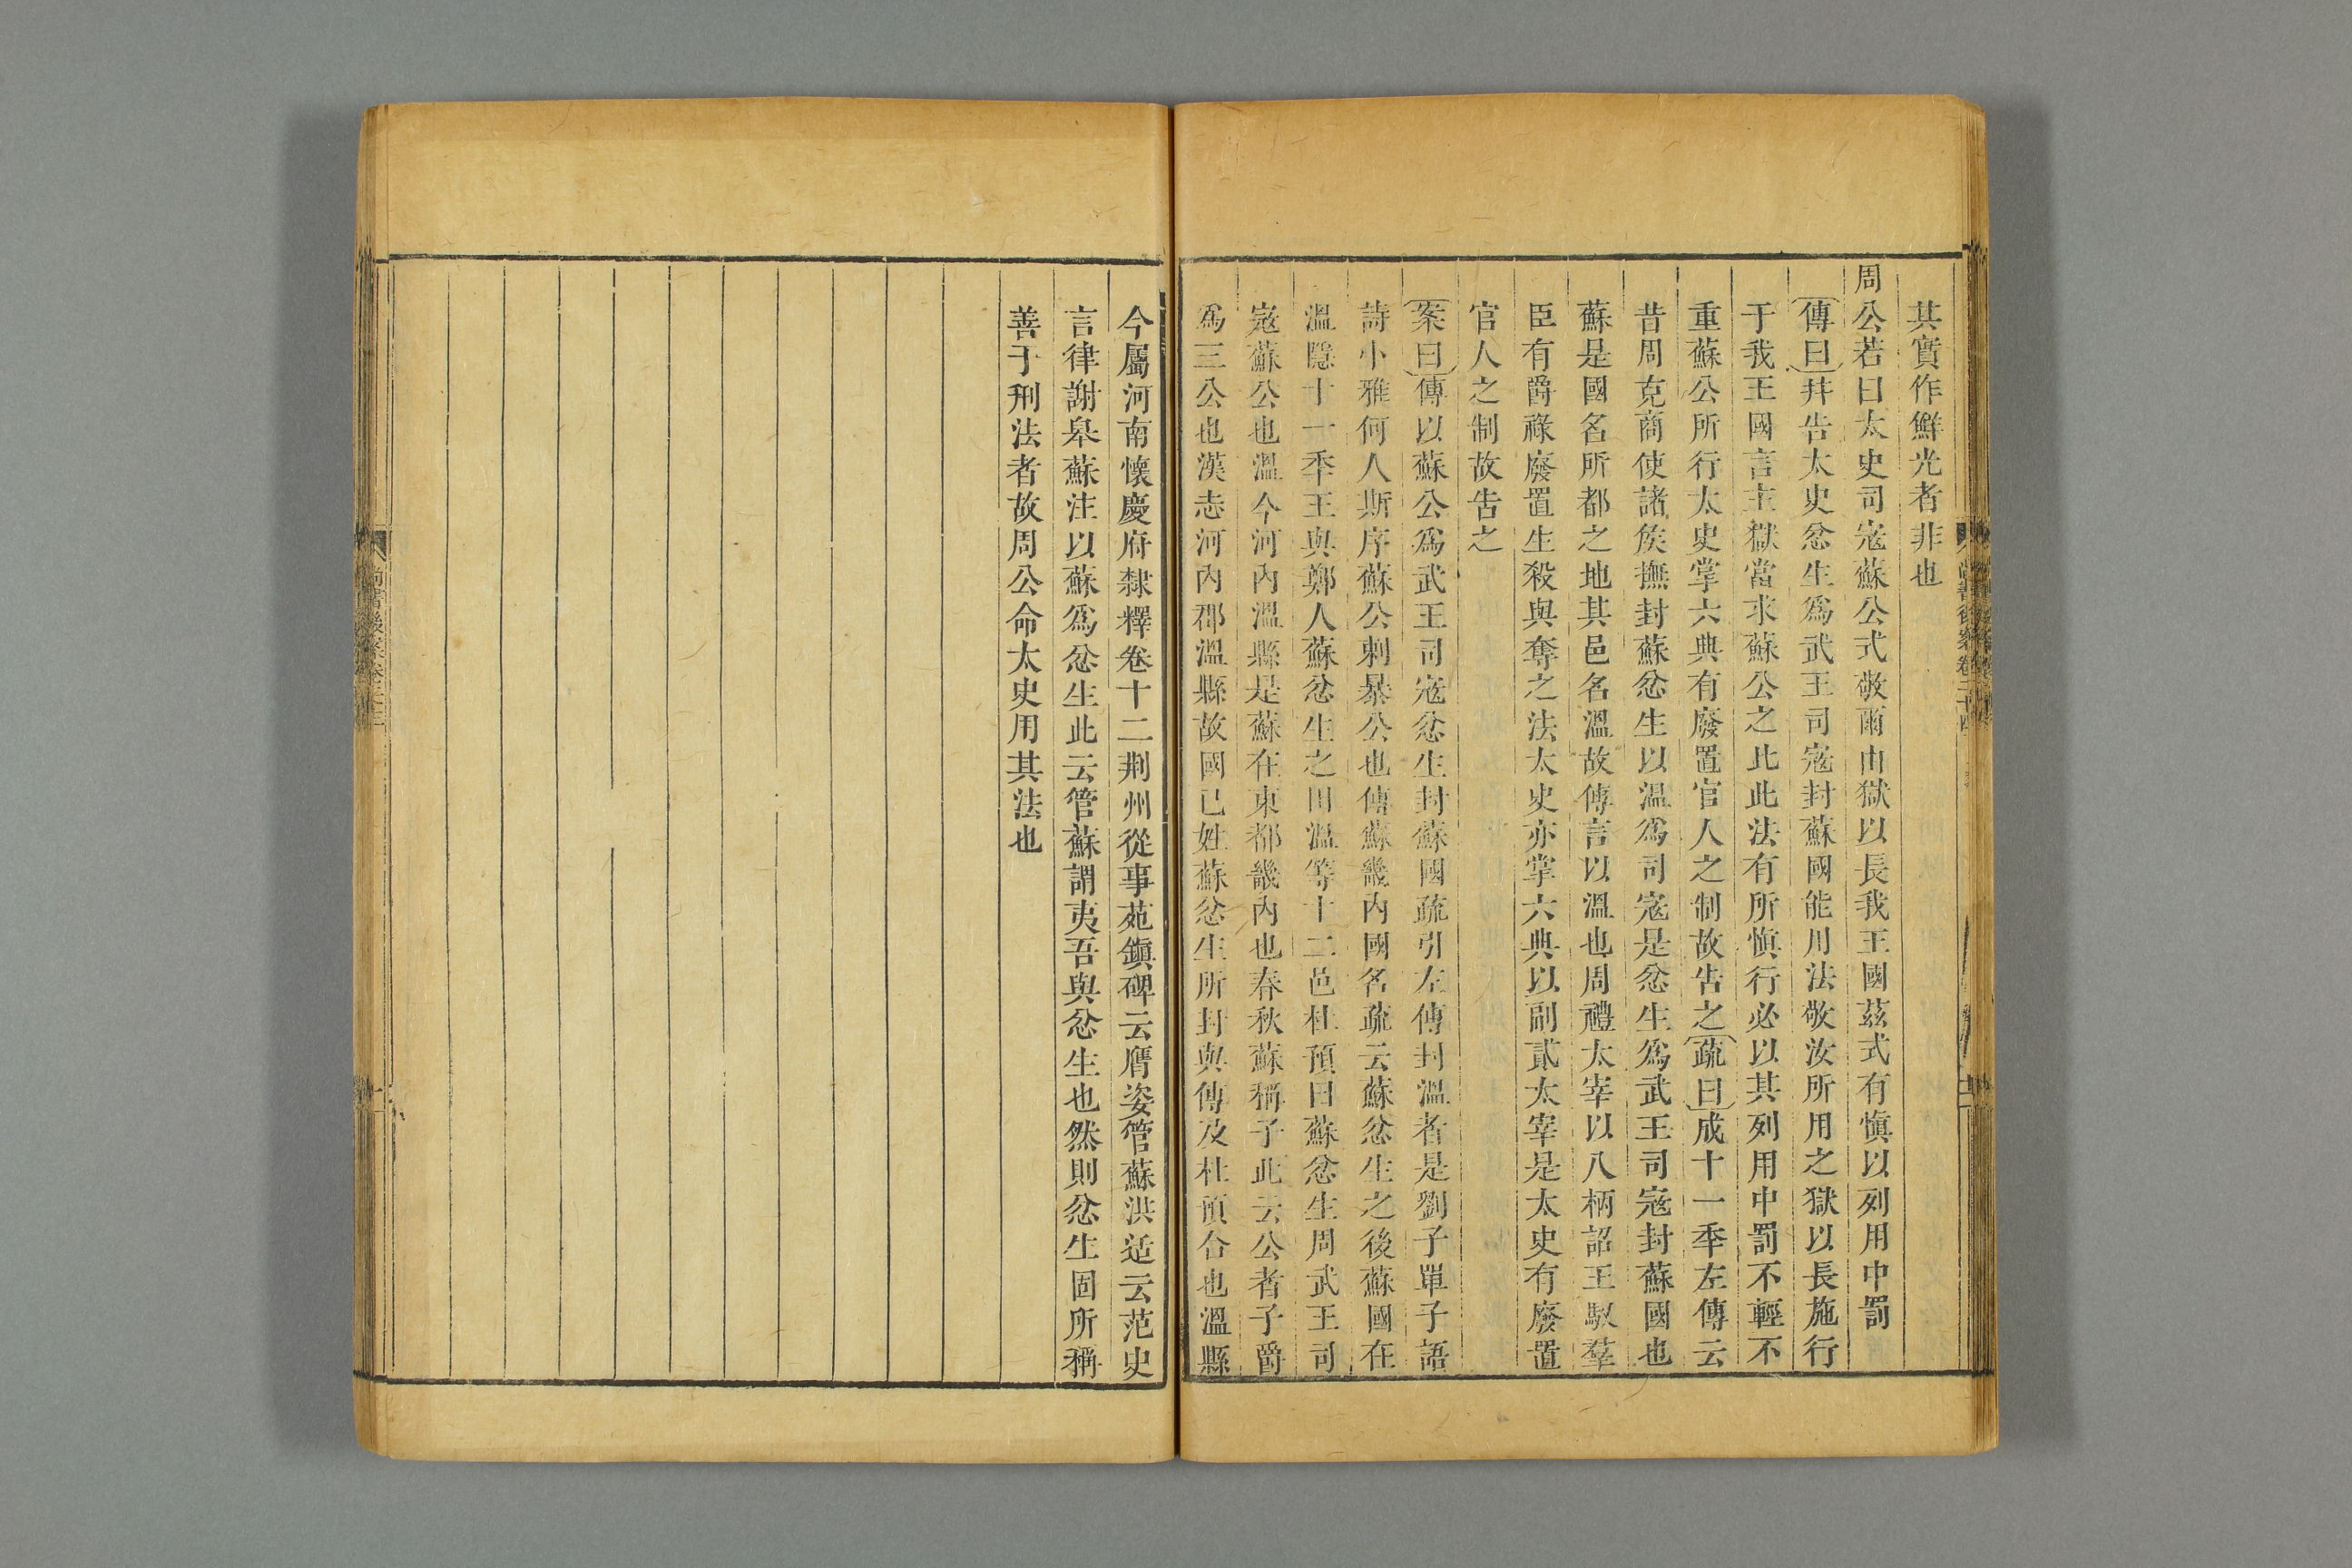 其實作鮮光者非也
周公若曰太史司寇蘇公式敬爾由獄以長我王國茲式有愼以列用中罰
傳曰幷告太史忿生爲武王司寇封蘇國能用法敬汝所用之獄以長施行
于我王國言主獄當求蘇公之此此法有所愼行必以其列用中罰不輕不
重蘇公所行太史掌六典有廢置官人之制故告之疏曰成十一秊左傳云
昔周克商使諸矦撫封蘇忿生以溫爲司寇是忿生爲武王司寇封蘇國也
蘇是國名所都之地其邑名溫故傳言以溫也周禮太宰以八柄詔王馭羣
臣有爵祿廢置生殺與奪之法太史亦掌六典以副貳太宰是太史有廢置
官人之制故告之
案曰傳以蘇公爲武王司寇忿生封蘇國疏引左傳封溫者是劉子單子語
詩小雅何人斯序蘇公刺暴公也傳蘇畿內國名疏云蘇忿生之後蘇國在
溫隱十一秊王與鄭人蘇忿生之田溫等十二邑杜預曰蘇忿生周武王司
寇蘇公也溫今河內溫縣是蘇在東都畿內也春秋蘇稱子此云公者子爵
爲三公也漢志河內郡溫縣故國已姓蘇忿生所封與傳及杜預合也溫縣
今屬河南懷慶府隸釋卷十二荆州從事苑鎭碑云膺姿管蘇洪适云范史
言律謝皋蘇注以蘇爲忿生此云管蘇謂夷吾與忿生也然則忿生固所稱
善于刑法者故周公命太史用其法也
尚書後案卷二十四